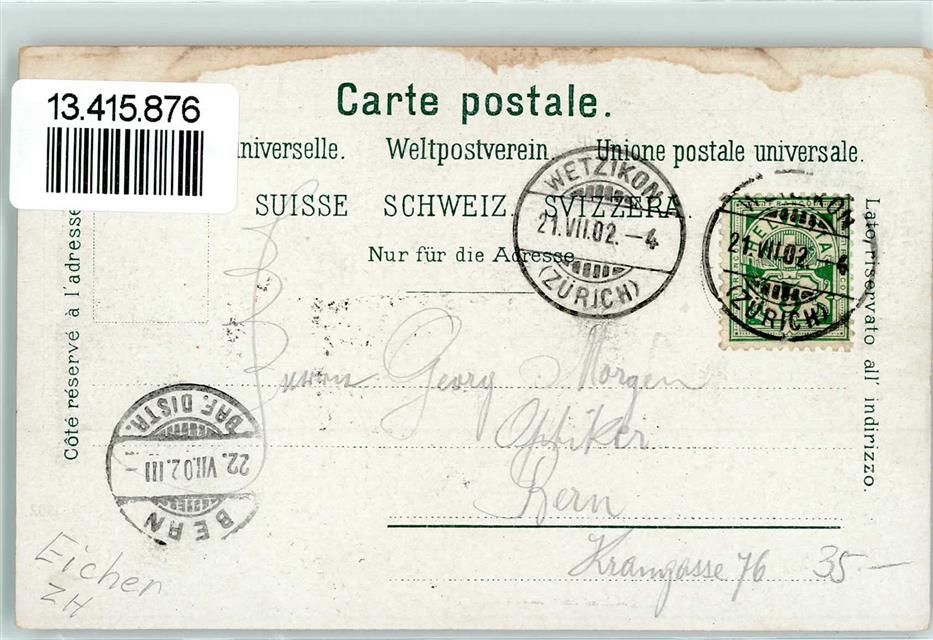 13.415.876
Carte postale.
universelle. Weltpostverein. Unione postale universale.
SUISSE SCHWEIZ SVIZZERA.
Nur für die Adresse
Côté réservé à l'adresse
Lato riservato all' indirizzo.
WETZIKON
21.VII.02.–4
(ZÜRICH)
WETZIKON
21.VII.02.–4
(ZÜRICH)
HELVETIA
Herrn Georg Morgen
Optiker
Bern
Kramgasse 76
35–
BERN
22.VII.02.III
BRF. DISTR.
Eicher
ZH